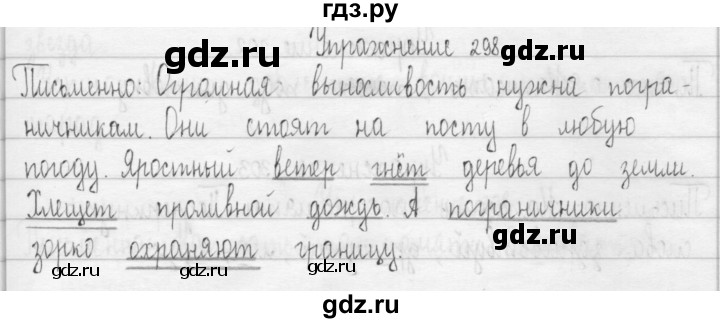 гдз.ру
gdz.ru gdz.ru
Упражнение 298
Письменно: Огромная выносливость нужна погра-
gdz.ru
ничникам. Они стоят на посту в любую
погоду. Яростный ветер гнёт деревья до земли.
gdz.ru gdz.ru
Хлещет проливной дождь. А пограничники
зорко охраняют границу.
gdz.ru gdz.ru gdz.ru
gdz.ru